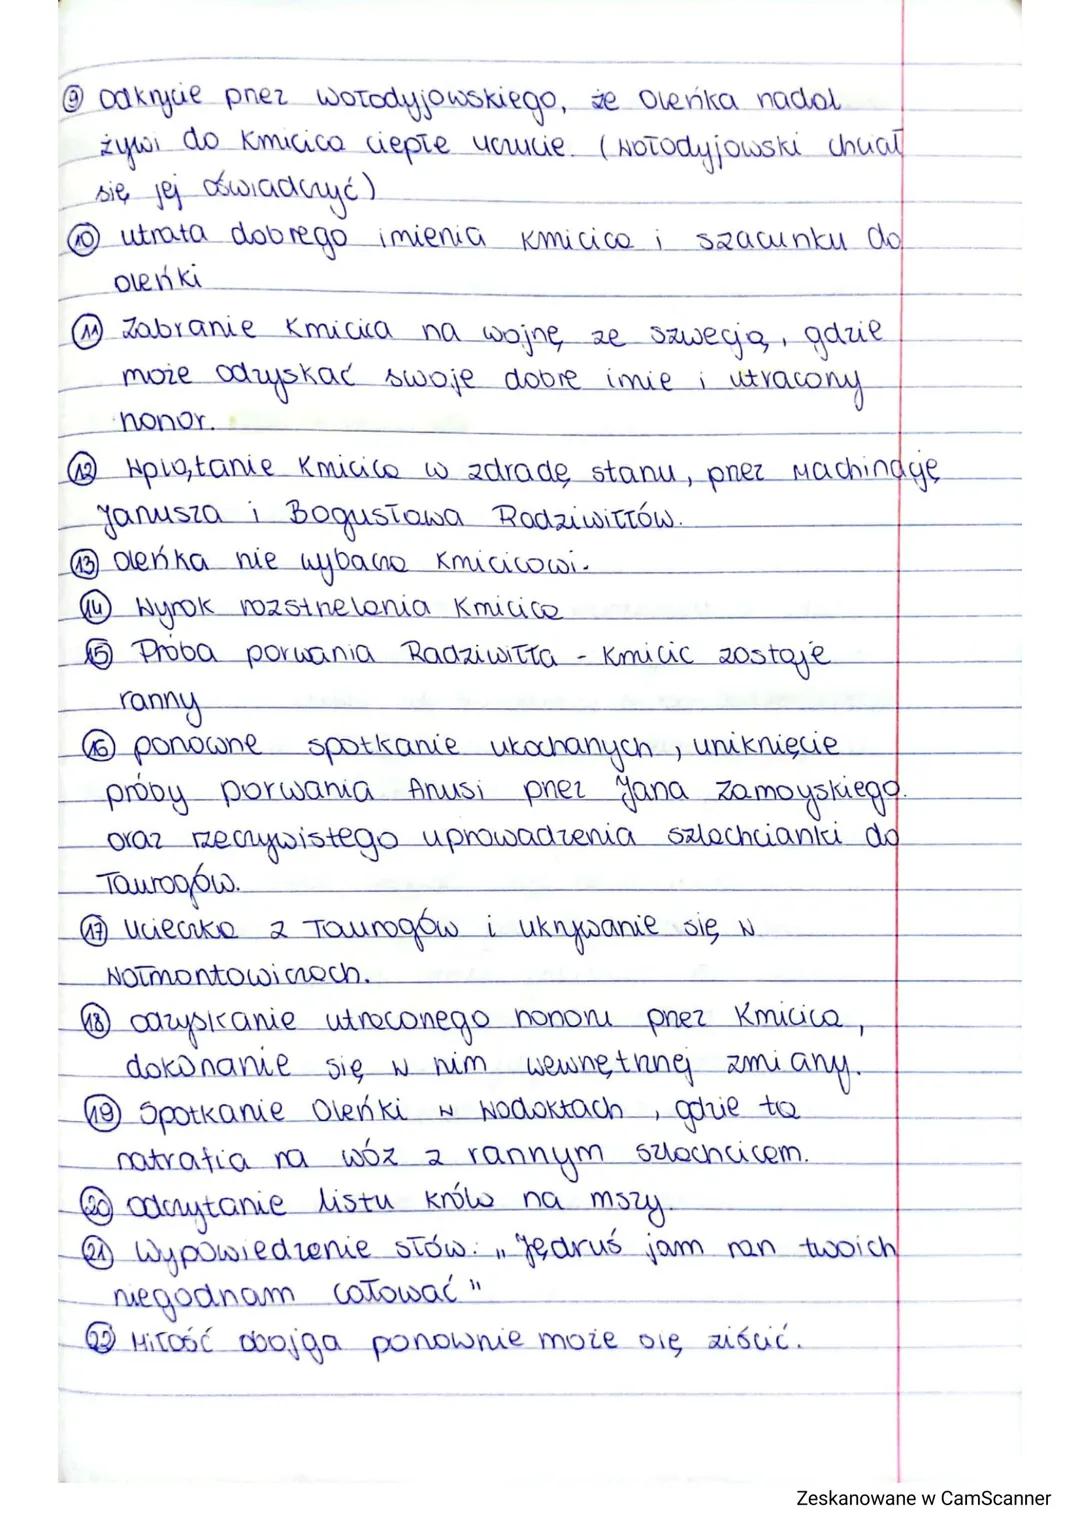 ⑨ Odkrycie przez Wołodyjowskiego, że Oleńka nadal
żywi do Kmicica ciepłe uczucie. (Wołodyjowski chciał
się jej oświadczyć)
⑩ utrata dobrego imienia Kmicica i szacunku do
Oleńki
⑪ Zabranie Kmicica na wojnę ze Szwecją, gdzie
może odzyskać swoje dobre imie i utracony
honor.
⑫ Wplątanie Kmicica w zdradę stanu, przez Machinację
Janusza i Bogusława Radziwiłłów.
⑬ Oleńka nie wybacza Kmicicowi.
⑭ Wyrok rozstrzelania Kmicica
⑮ Próba porwania Radziwiłła - Kmicic zostaje
ranny
⑯ ponowne spotkanie ukochanych, uniknięcie
próby porwania Anusi przez Jana Zamoyskiego.
oraz rzeczywistego uprowadzenia szlachcianki do
Taurogów.
⑰ Ucieczka z Taurogów i ukrywanie się w
Wołmontowiczach.
⑱ odzyskanie utraconego honoru przez Kmicica,
dokonanie się w nim wewnętrznej zmiany.
⑲ Spotkanie Oleńki w Wodoktach, gdzie ta
natrafia na wóz z rannym szlachcicem.
⑳ odczytanie listu króla na mszy.
㉑ Wypowiedzenie słów: „Jędruś jam ran twoich
niegodnam całować"
㉒ Miłość obojga ponownie może się ziścić.
Zeskanowane w CamScanner